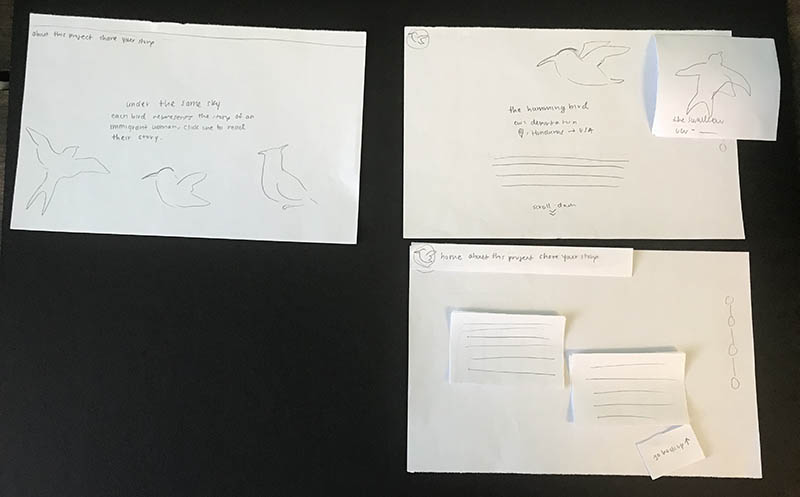 about this project share your story
under the same sky
each bird represents the story of an
immigrant woman. click one to read
their story.
the hummingbird
cw: deportation
Honduras → USA
scroll down
the swallow
cw -
home about this project share your story
go back up ↑